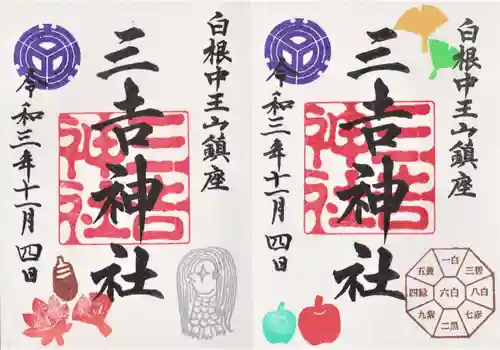 白根中王山鎮座
三吉神社
三吉神社
令和三年十一月四日
白根中王山鎮座
三吉神社
三吉神社
令和三年十一月四日
一白
三碧
八白
七赤
二黒
九紫
四緑
五黄
六白